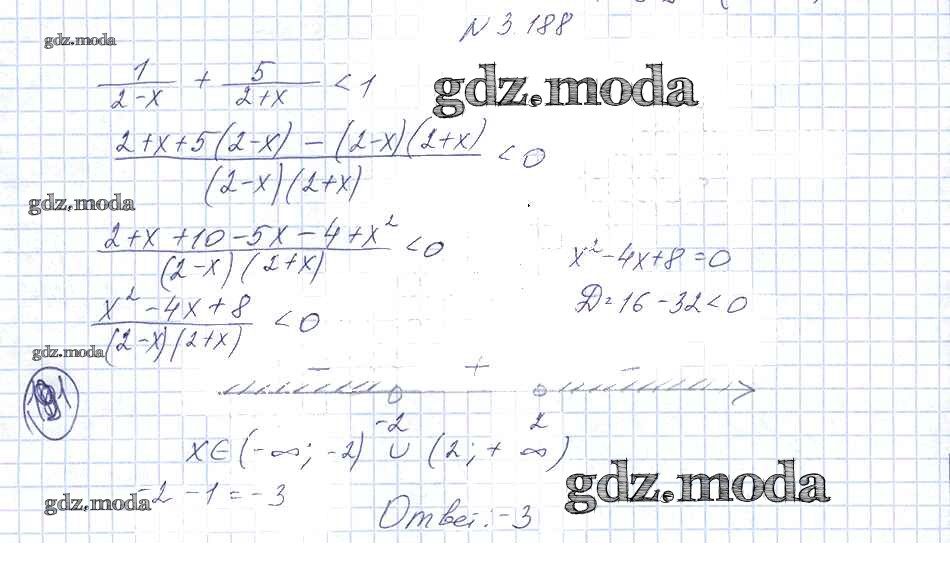 N 3.188
gdz.moda
1/(2-x) + 5/(2+x) < 1
gdz.moda
(2+x+5(2-x) - (2-x)(2+x))/((2-x)(2+x)) < 0
gdz.moda
(2+x+10-5x-4+x²)/((2-x)(2+x)) < 0
x²-4x+8=0
(x²-4x+8)/((2-x)(2+x)) < 0
D=16-32<0
gdz.moda
- + -
-2 2
x∈(-∞; -2) ∪ (2; +∞)
-2-1=-3
gdz.moda
Ответ: -3
gdz.moda